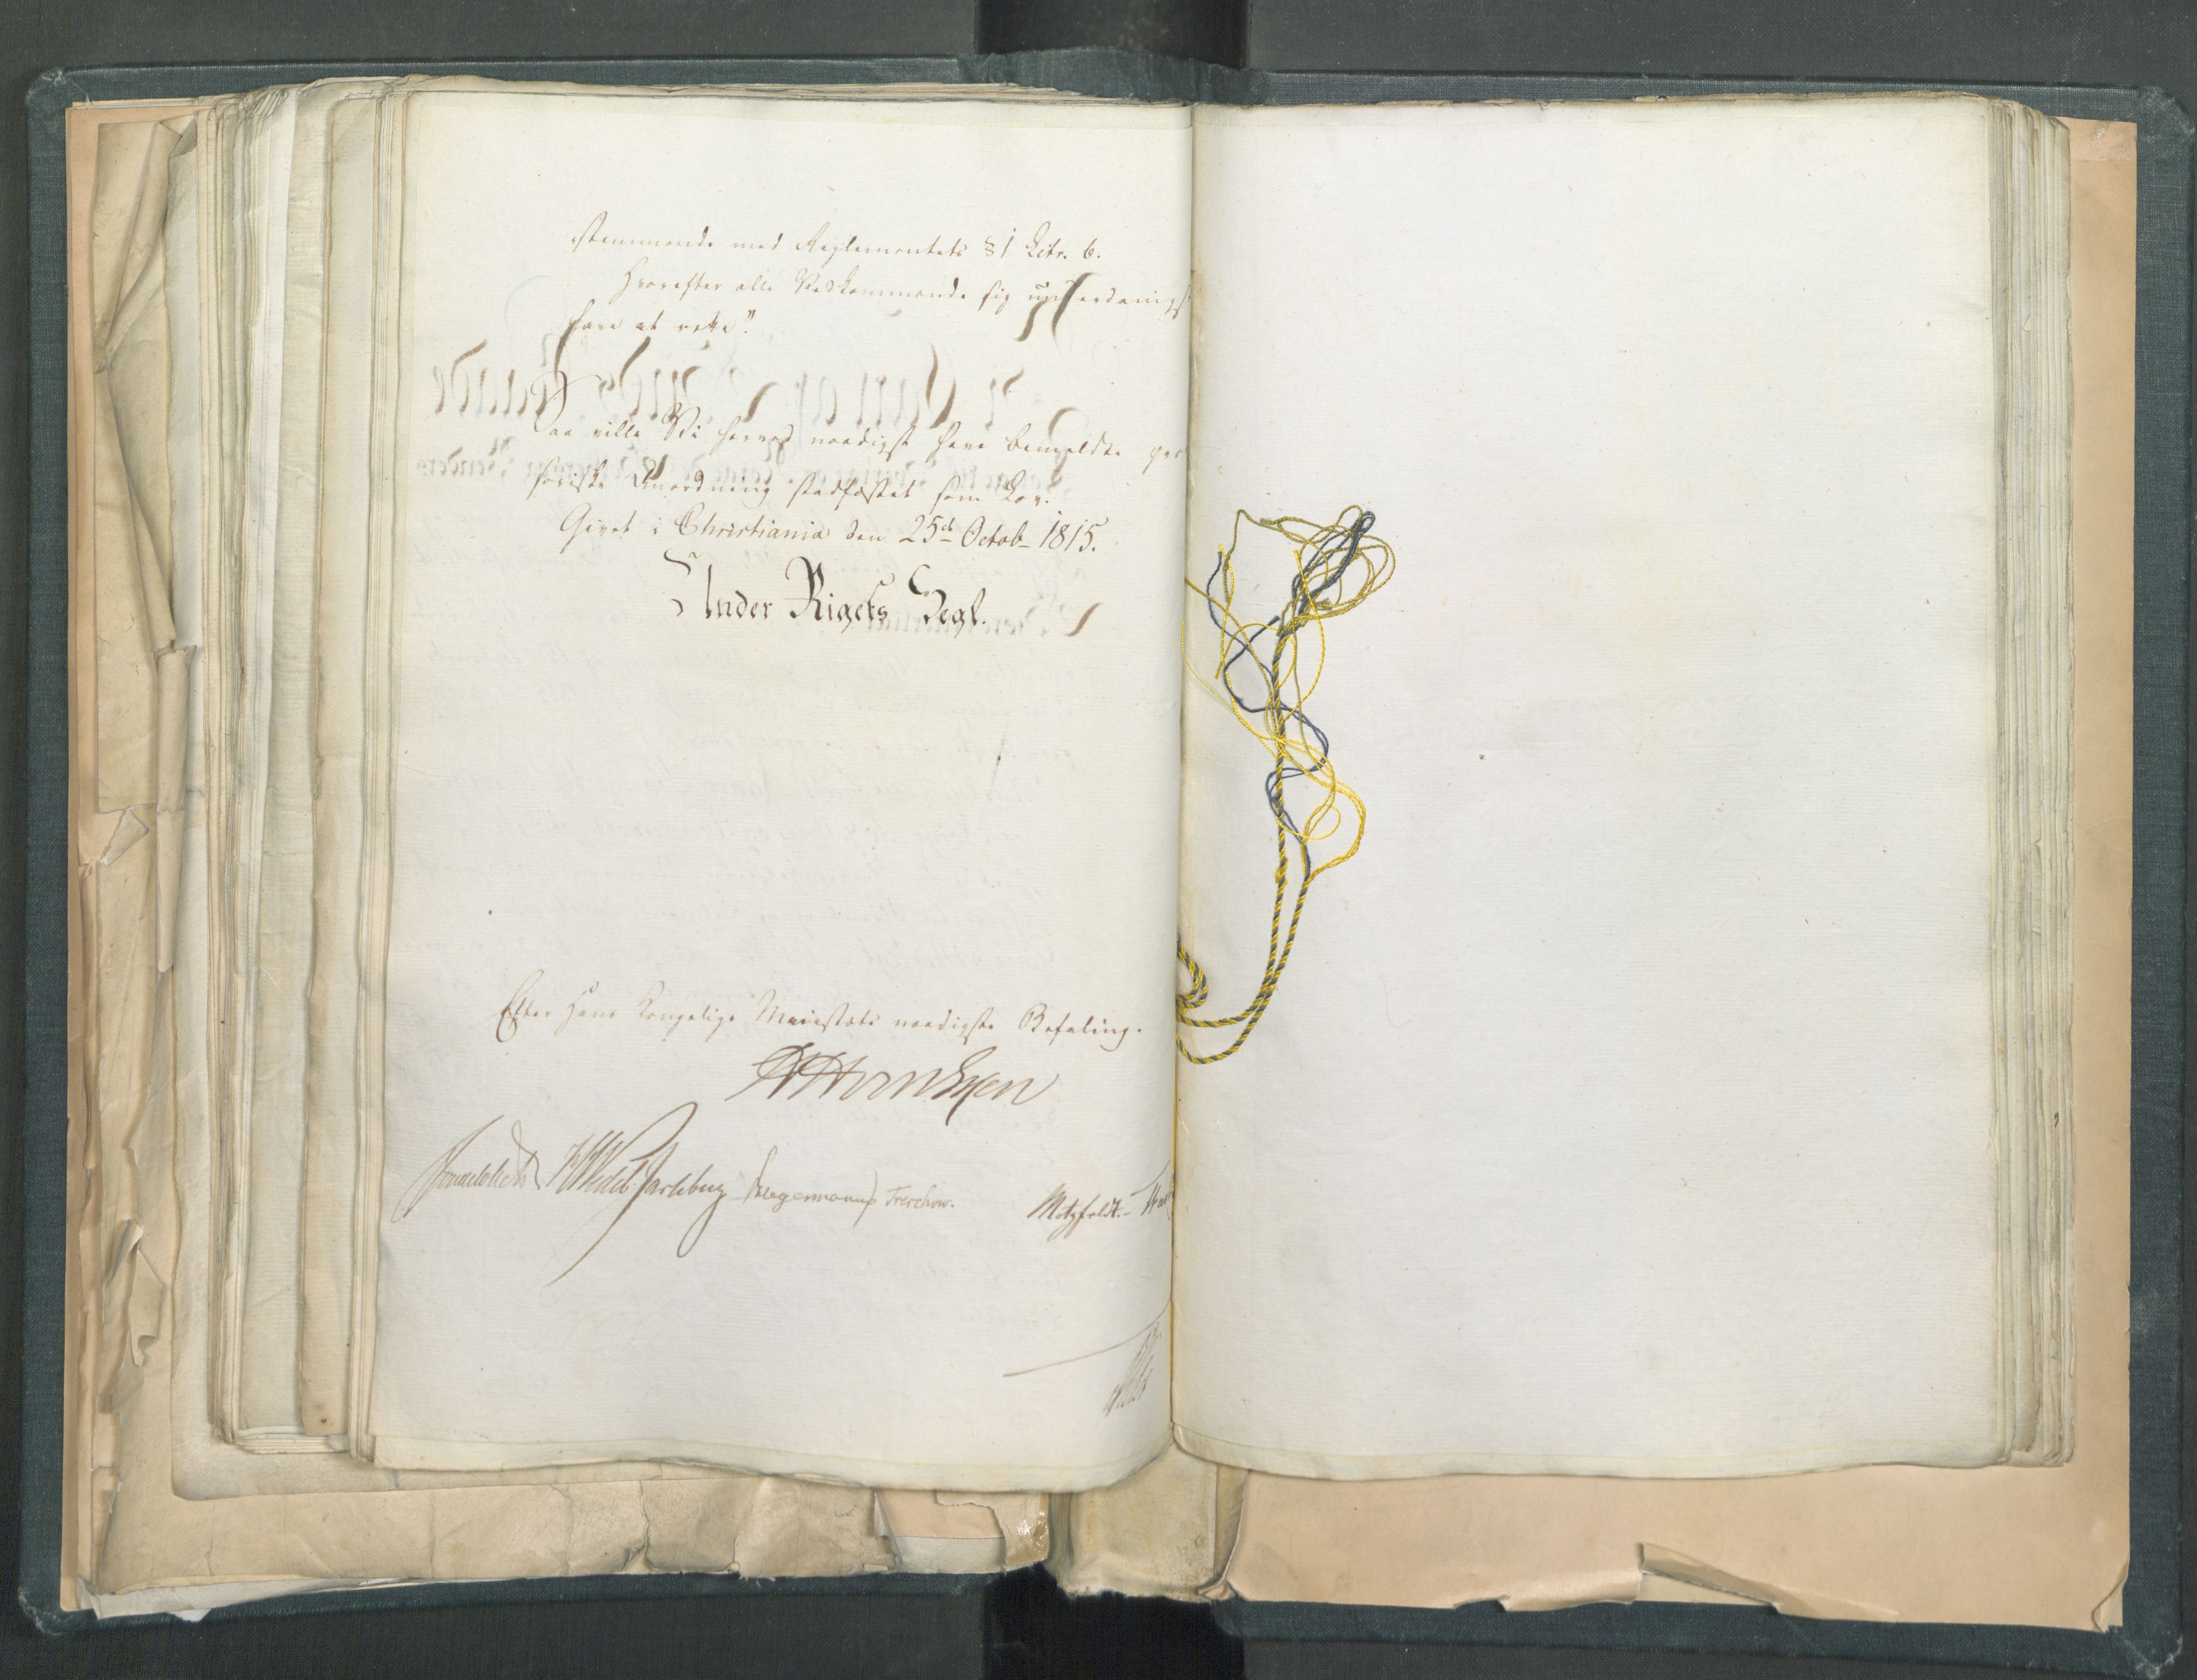 stemmende med Reglementets § 1 Litr. b.
Hvorefter alle Vedkommende sig underdanigst
have at rette."
Saa ville Vi herved naadigst have bemeldte pro
soriske Anordning stadfæstet som Lov.
Givet i Christiania den 25de Octob- 1815.
Under Rigets Segl.
Efter Hans Kongelige Maiestæts naadigste Befaling.
Sommelhielm HWedel-Jarlsberg Hegermann Treschow. Motzfeldt.-